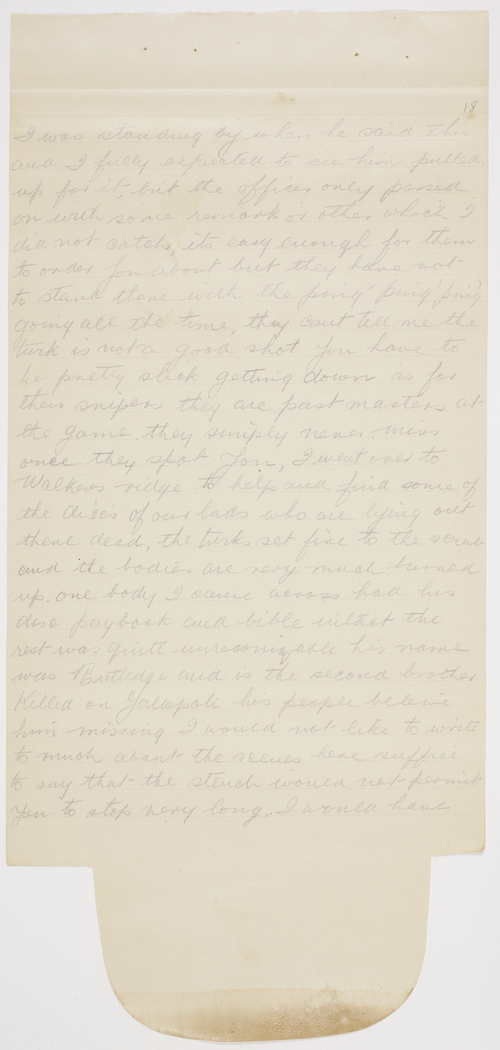 18
I was standing by when he said this
and I fully expected to see him pulled
up for it, but the officer only passed
on with some remark or other which I
did not catch, its easy enough for them
to order you about but they have not
to stand there with the ping' ping' ping'
going all the time, they cant tell me the
turk is not a good shot you have to
be pretty slick getting down as for
their snipers they are past masters at
the game. they simply never miss
once they spot you, I went over to
Walkers ridge to help and find some of
the discs of our lads who are lying out
there dead, the turks set fire to the scrub
and the bodies are very much burned
up. one body I came across had his
disc paybook and bible intact the
rest was quite unreconizable his name
was Rutledge and is the second brother
Killed on Gallapoli his people beleive
him missing I would not like to write
to much about the scenes here suffice
to say that the stench would not permit
you to stop very long. I would have